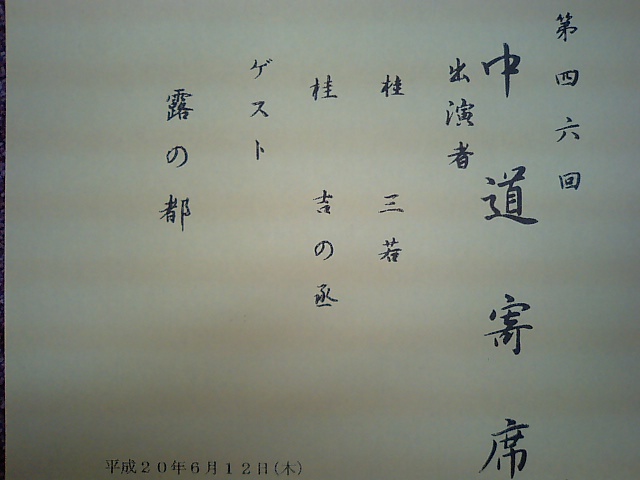 第四六回
中道寄席
出演者
桂 三若
桂 吉の丞
ゲスト
露の都
平成20年6月12日(木)